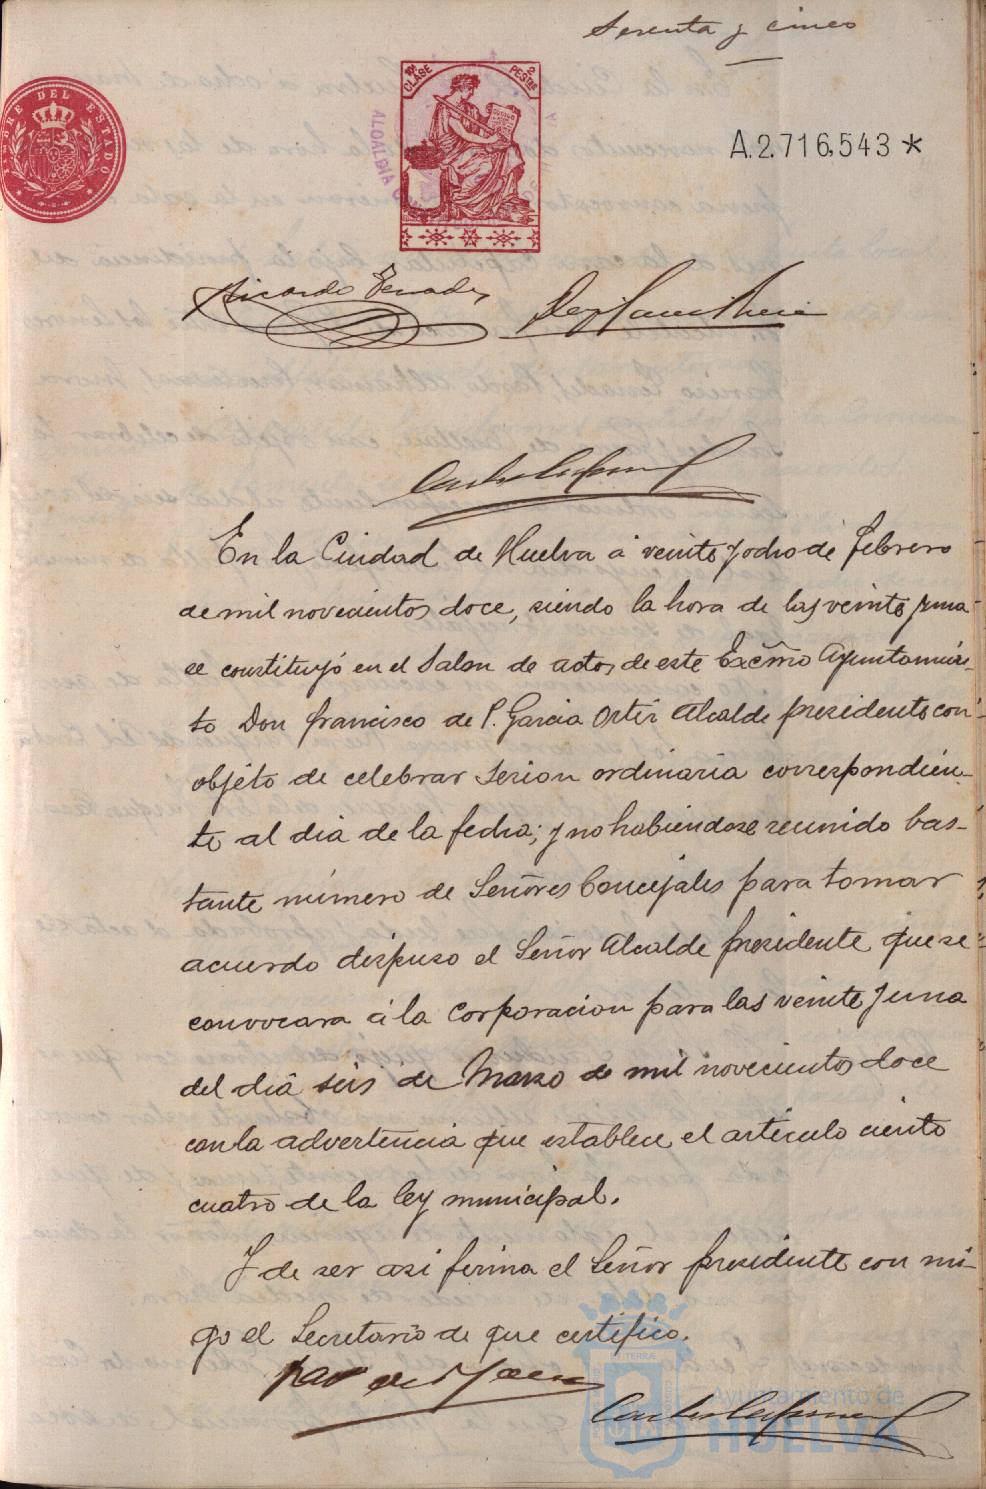 Sesenta y cinco
TIMBRE DEL ESTADO
10ª CLASE
2 PESETAS
ALCALDIA
A.2.716,543 *
Ricardo Terrades
En la Ciudad de Huelva á veinte y ocho de febrero
de mil novecientos doce, siendo la hora de las veinte y una
se constituyó en el Salon de actos de este Excmo Ayuntamien-
to Don Francisco de P. Garcia Ortiz Alcalde presidente con
objeto de celebrar sesion ordinaria correspondien-
te al dia de la fecha; y no habiendose reunido bas-
tante número de Señores Concejales para tomar
acuerdo dispuso el Señor Alcalde presidente que se
convocara á la Corporacion para las veinte y una
del dia seis de Marzo de mil novecientos doce
con la advertencia que establece el artículo ciento
cuatro de la ley municipal.
Y de ser asi firma el Señor presidente con mi-
go el Secretario de que certifico.
Ayuntamiento de
HUELVA